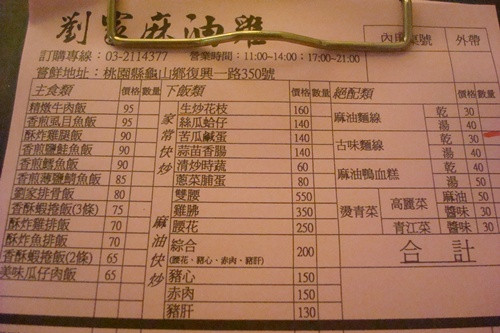 劉家麻油雞
訂購專線：03-2114377 營業時間：11:00~14:00；17:00~21:00
嘗鮮地址：桃園縣龜山鄉復興一路350號
內用 桌號 外帶
主食類 價格 數量 下飯類 價格 數量 絕配類 價格 數量
精燉牛肉飯 95
香煎虱目魚飯 95
酥炸雞腿飯 90
香煎鹽鮭魚飯 90
香煎鱈魚飯 90
香煎薄鹽鯖魚飯 85
劉家排骨飯 80
香酥蝦捲飯(3條) 75
酥炸雞排飯 70
酥炸魚排飯 70
香酥蝦捲飯(2條) 65
美味瓜仔肉飯 65
家常快炒
生炒花枝 160
絲瓜蛤仔 140
苦瓜鹹蛋 140
蒜苗香腸 140
清炒時蔬 60
蔥菜脯蛋 80
麻油快炒
雙腰 550
雞腓 350
腰花 250
綜合 200
(腰花、豬心、赤肉、豬肝)
豬心 150
赤肉 150
豬肝 130
麻油麵線 乾 30
湯 40
古味麵線 乾 30
湯 40
麻油鴨血糕 乾 40
湯 50
燙青菜 高麗菜 麻油 50
醬味 30
青江菜 醬味 30
合計